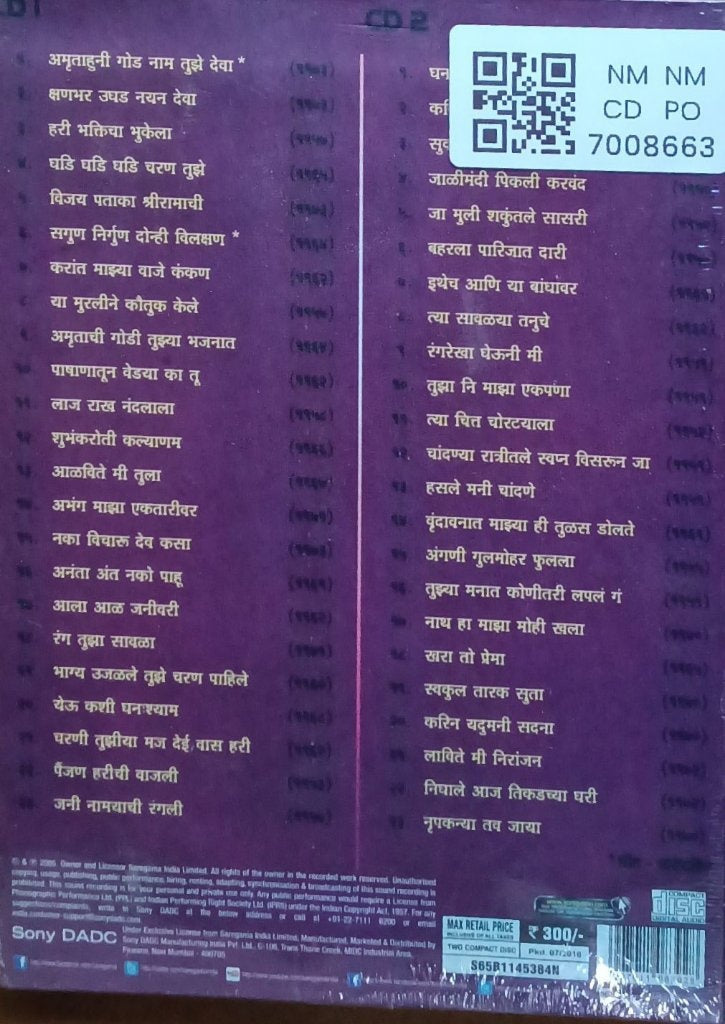 CD 2
अमृताहुनी गोड नाम तुझे देवा *
क्षणभर उघड नयन देवा
हरी भक्तिचा भुकेला
घडि घडि घडि चरण तुझे
विजय पताका श्रीरामाची
सगुण निर्गुण दोन्ही विलक्षण *
करांत माझ्या वाजे कंकण
या मुरलीने कौतुक केले
अमृताची गोडी तुझ्या भजनात
पाषाणातून वेडया का तू
लाज राख नंदलाला
शुभंकरोती कल्याणम
आळविते मी तुला
अभंग माझा एकतारीवर
नका विचारू देव कसा
अनंता अंत नको पाहू
आला आळ जनीवरी
रंग तुझा सावळा
भाग्य उजळले तुझे चरण पाहिले
येऊ कशी घनःश्याम
चरणी तुझीया मज देई वास हरी
पैंजण हरीची वाजली
जनी नामयाची रंगली
घन
जाळीमंदी पिकली करवंद
जा मुली शकुंतले सासरी
बहरला पारिजात दारी
इथेच आणि या बांधांवर
त्या सावळया तनुचे
रंगरेखा घेऊनी मी
तुझा नि माझा एकपणा
त्या चित्त चोरटयाला
चांदण्या रात्रीतले स्वप्न विसरून जा
हसले मनी चांदणे
वृंदावनात माझ्या ही तुळस डोलते
अंगणी गुलमोहर फुलला
तुझ्या मनात कोणीतरी लपलं गं
नाथ हा माझा मोही खला
खरा तो प्रेमा
स्वकुल तारक सुता
करिन यदुमनी सदना
लाविते मी निरांजन
निघाले आज तिकडच्या घरी
नृपकन्या तव जाया
NM NM
CD PO
7008663
Owner and Licensor Saregama India Limited. All rights of the owner in the recorded work reserved. Unauthorised
copying, usage, publishing, public performance, hiring, renting, adapting, synchronisation & broadcasting of this sound recording is
prohibited. This sound recording is for your personal and private use only. Any public performance would require a License from
Phonographic Performance Ltd. (PPL) and Indian Performing Right Society Ltd. (IPRS) under the Indian Copyright Act, 1957. For any
suggestions/complaints, write to Sony DADC at the below address or call at +91-22-7111 6200 or email
Sony DADC
Under Exclusive License from Saregama India Limited, Manufactured, Marketed & Distributed by
Sony DADC Manufacturing India Pvt. Ltd., C-106, Trans Thane Creek, MIDC Industrial Area,
Pawane, Navi Mumbai - 400705
MAX RETAIL PRICE
INCLUSIVE OF ALL TAXES
₹ 300/-
TWO COMPACT DISC
Pkd. 07/2016
S65R1145384N
COMPACT
disc
DIGITAL AUDIO